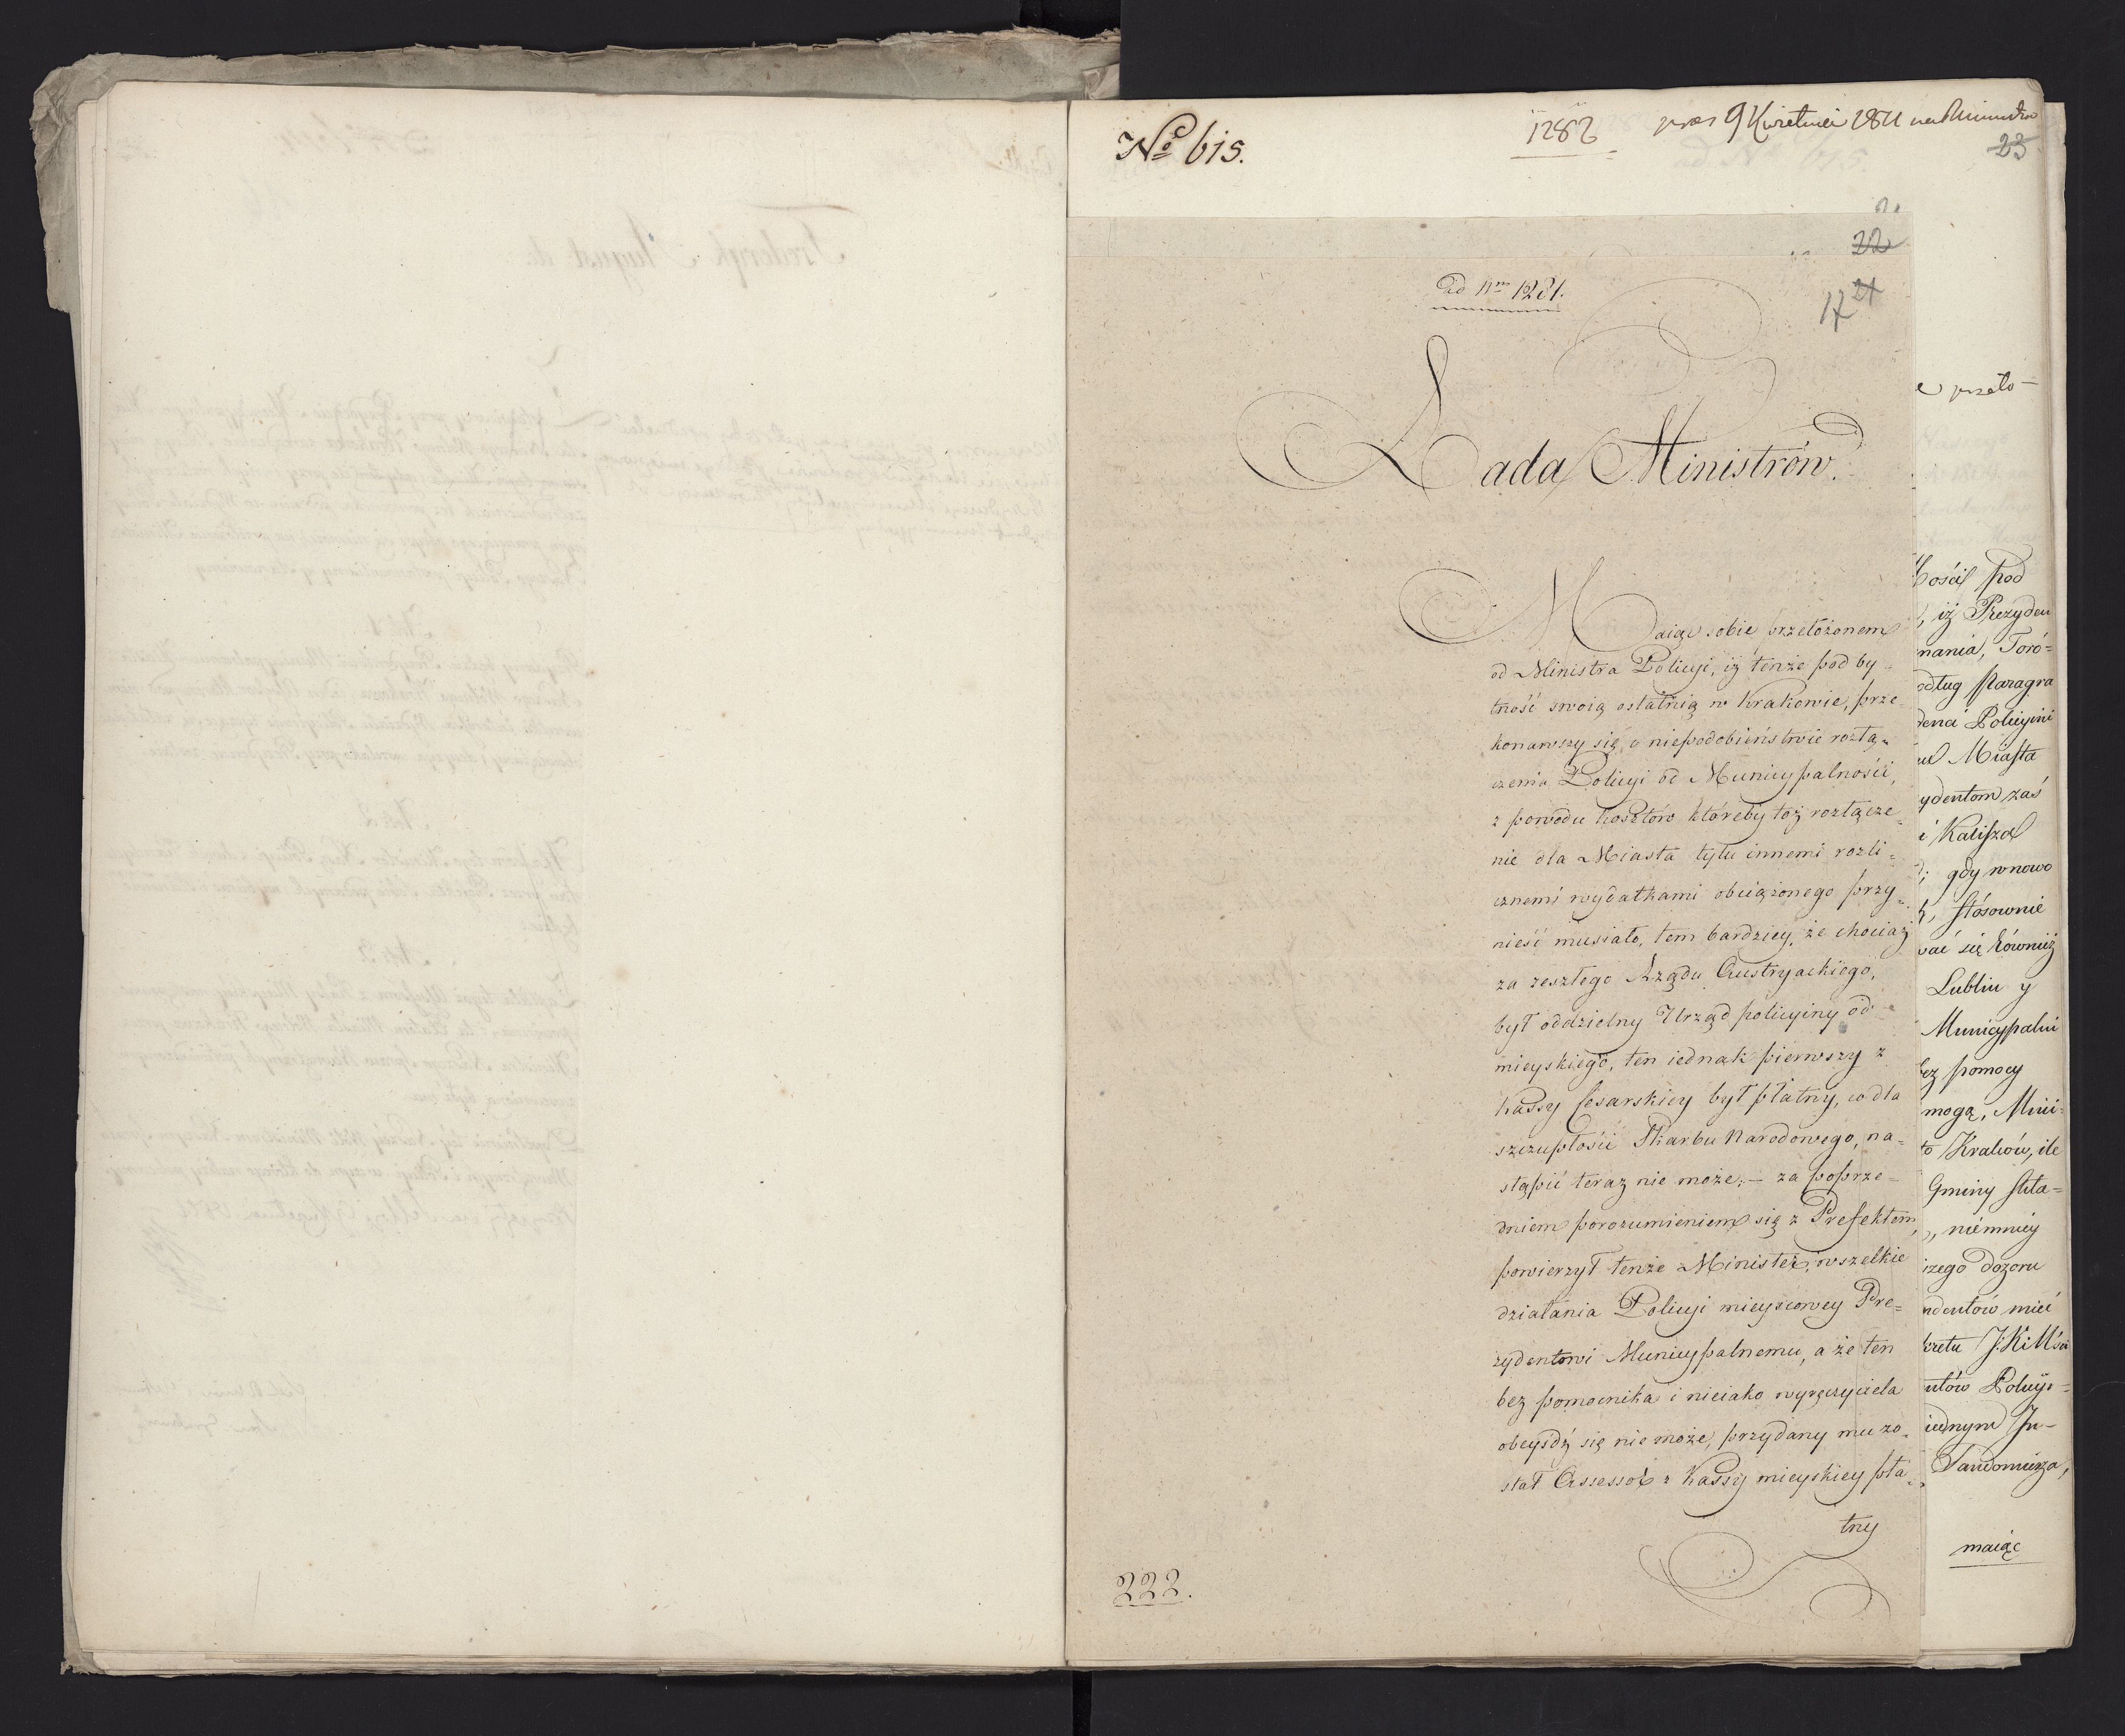 No 615.
1282
9 Kwietnia 1811
23
22
ad Nrm 1281.
17 21
Rada Ministrów.
Maiąc sobie przełożonem
od Ministra Policyi, iż tenże pod by-
tność swoią ostatnią w Krakowie, prze-
konawszy się o niepodobieństwie rozłą-
czenia Policyi od Municypalności,
z powodu kosztów któreby toż rozłącze-
nie dla Miasta tylu innemi rozli-
cznemi wydatkami obciążonego przy-
nieść musiało, tem bardziey, że chociaż
za zeszłego Rządu Austryackiego,
był oddzielny Urząd policyiny od
mieyskiego, ten iednak pierwszy z
Kassy Cesarskiey był płatny, co dla
szczupłości Skarbu Narodowego, na-
stąpić teraz nie może; — za poprze-
dniem porozumieniem się z Prefektem,
powierzył tenże Minister, wszelkie
działania Policyi mieyscowey Pre-
zydentowi Municypalnemu, a że ten
bez pomocnika i nieiako wyręczyciela
obeyśdź się nie może, przydany mu zo-
stał Assessor z Kassy mieyskiey pła-
tny
222.
przeło-
pod
, iż Prezyden
nania, Toró-
odług Paragra
Policyini
Miasta
ydentom zaś
i Kalisza
; gdy w nowo
, stósownie
wać się również
Lublin y
Municypalni
ez pomocy
mogą, Mini-
to Kraków, ile
Gminy skła-
, niemniéy
dozoru
ndentów mieć
kretu J: K: Mści
ntów Policyi-
iednym In-
Sandomierza,
maiąc